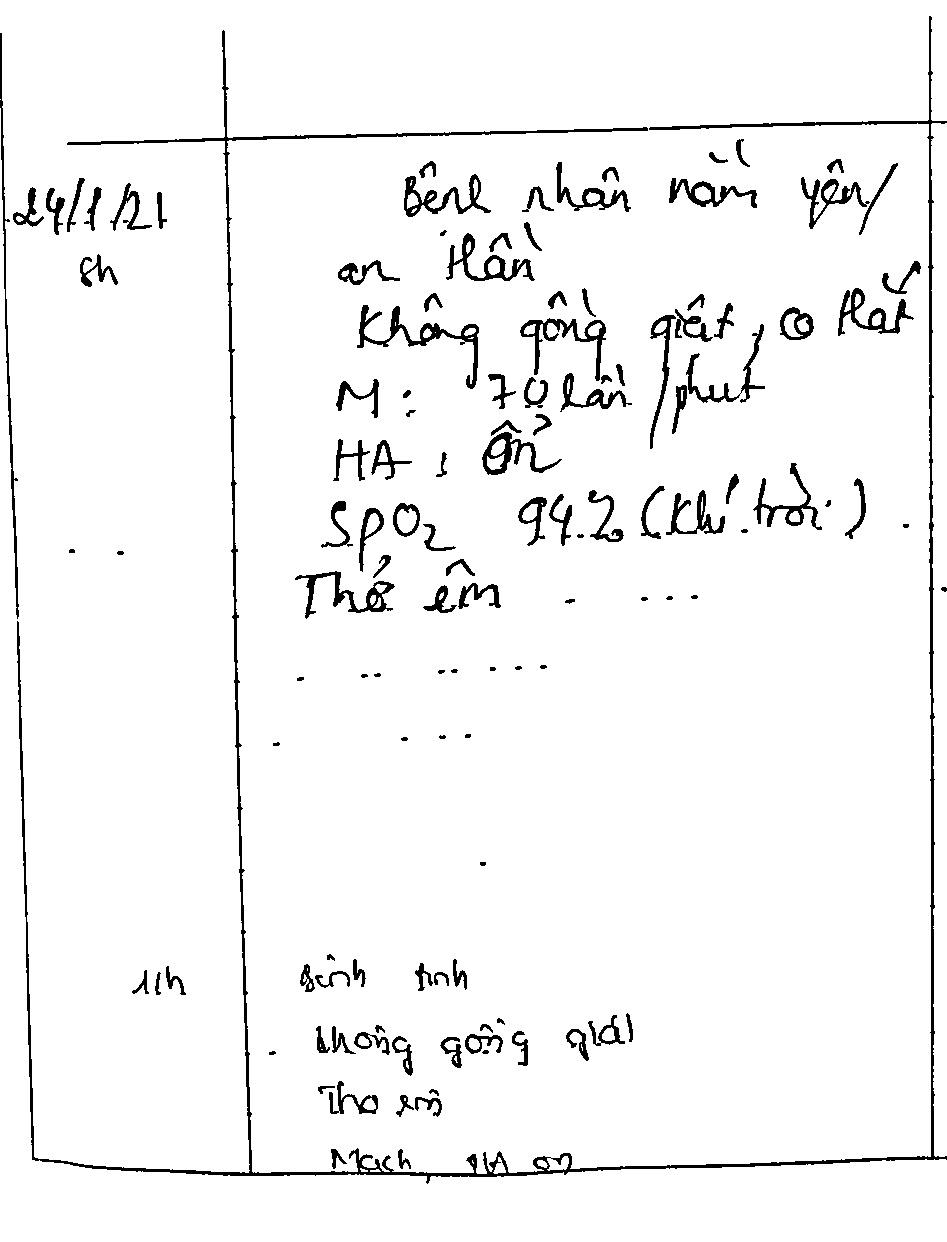 24/1/21
8h
Bệnh nhân nằm yên/
an thần
Không gồng giật, co thắt
M: 70 lần/phút
HA: ổn
SpO2 94% (khí trời)
Thở êm
11h
Bệnh tỉnh
Không gồng giật
Thở êm
Mạch, HA ổn